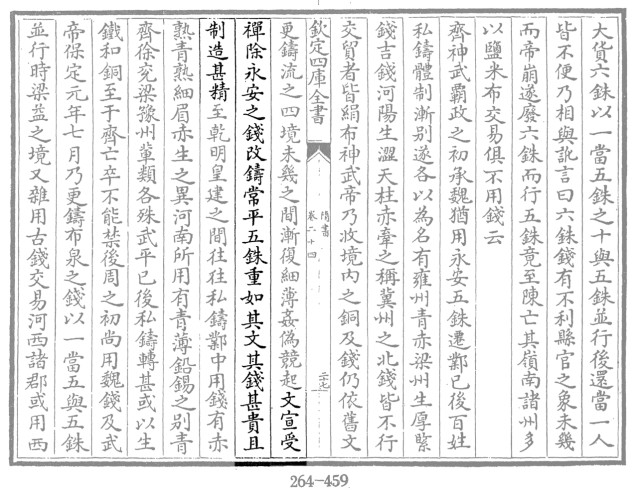 大貨六銖以一當五銖之十與五銖並行後還當一人
皆不便乃相與訛言曰六銖錢有不利縣官之象未幾
而帝崩遂廢六銖而行五銖竟至陳亡其嶺南諸州多
以鹽米布交易俱不用錢云
齊神武霸政之初承魏猶用永安五銖遷鄴已後百姓
私鑄體制漸别遂各以為名有雍州青赤梁州生厚緊
錢吉錢河陽生澀天柱赤牽之稱冀州之北錢皆不行
交貿者皆絹布神武帝乃收境内之銅及錢仍依舊文
欽定四庫全書
隋書
卷二十四
更鑄流之四境未幾之間漸復細薄姦偽競起文宣受
禪除永安之錢改鑄常平五銖重如其文其錢甚貴且
制造甚精至乾明皇建之間往往私鑄鄴中用錢有赤
熟青熟細眉赤生之異河南所用有青薄鉛錫之别青
齊徐兖梁豫州軰類各殊武平已後私鑄轉甚或以生
鐵和銅至于齊亡卒不能禁後周之初尚用魏錢及武
帝保定元年七月乃更鑄布泉之錢以一當五與五銖
並行時梁益之境又雜用古錢交易河西諸郡或用西
264-459